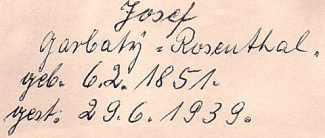 Josef
Garbatÿ=Rosenthal.
geb. 6.2. 1851.
gest. 29.6. 1939.